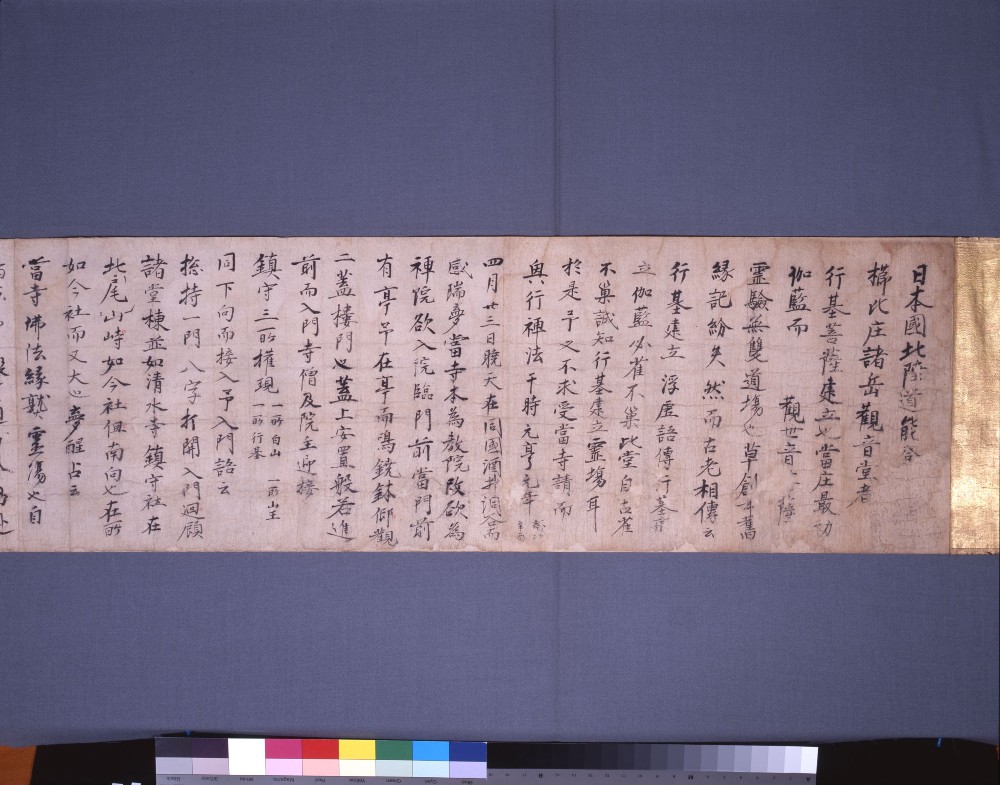 日本國北陸道能
櫛比庄諸岳觀音堂者
行基菩薩建立也當庄最初
伽藍而 觀世音 薩
靈驗無雙道場也草創年舊
縁記紛失然而古老相傳云
行基建立 浮屠語傳行基菩
立伽藍必雀不巣此堂自古雀
不巣誠知行基建立靈場耳
於是予又不求受當寺請而
與行禅法于時元亨元年 辛酉
四月廿三日曉天在同國酒井洞谷而
感瑞夢當寺本為教院改欲為
禅院欲入院臨門前當門前
有亭予在亭而鳴銃鉢仰觀
二蓋樓門也蓋上安置般若進
前而入門寺僧及院主迎接
鎮守三所權現 一所白山 一所山王 一所行基
同下向而接入予入門語云
捴持一門 八字打開入門迴顧
諸堂棟並如清水寺鎮守社在
北尾山峙如今社但南向也在所
如今社而又大也夢醒占云
當寺佛法縁熟靈場也自